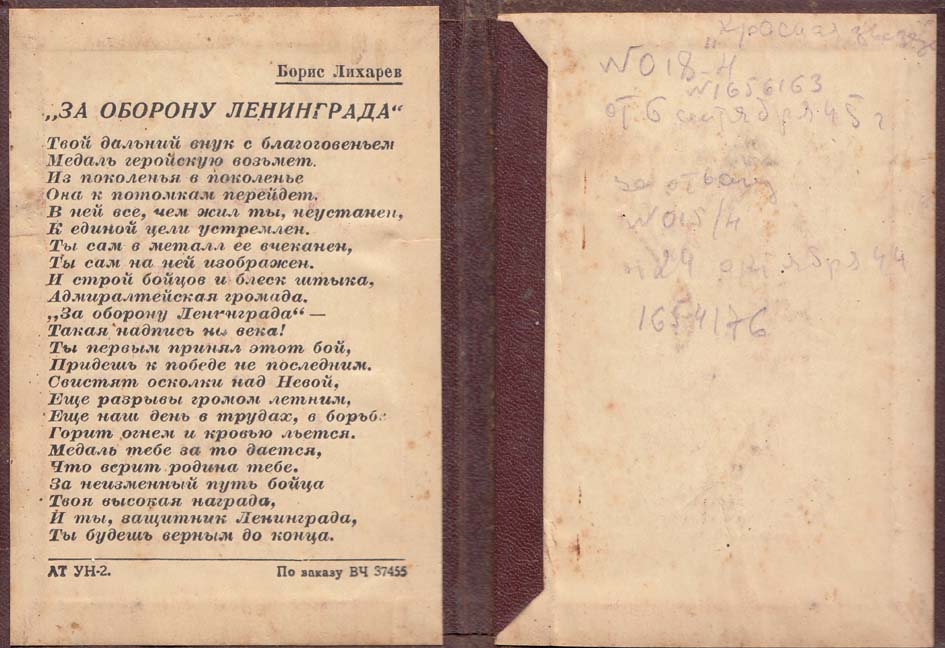 Борис Лихарев
„ЗА ОБОРОНУ ЛЕНИНГРАДА“
Твой дальний внук с благоговеньем
Медаль геройскую возьмет.
Из поколенья в поколенье
Она к потомкам перейдет.
В ней все, чем жил ты, неустанен,
К единой цели устремлен.
Ты сам в металл ее вчеканен,
Ты сам на ней изображен.
И строй бойцов и блеск штыка,
Адмиралтейская громада.
„За оборону Ленинграда“ —
Такая надпись на века!
Ты первым принял этот бой,
Придешь к победе не последним.
Свистят осколки над Невой,
Еще разрывы громом летним,
Еще наш день в трудах, в борьбе
Горит огнем и кровью льется.
Медаль тебе за то дается,
Что верит родина тебе.
За неизменный путь бойца
Твоя высокая награда,
И ты, защитник Ленинграда,
Ты будешь верным до конца.
ЛТ УН-2. По заказу ВЧ 37455
„Красная звезда
№018-Н
№1656163
от 6 сентября 45 г
за отвагу
№015/Н
24 октября 44
1654176